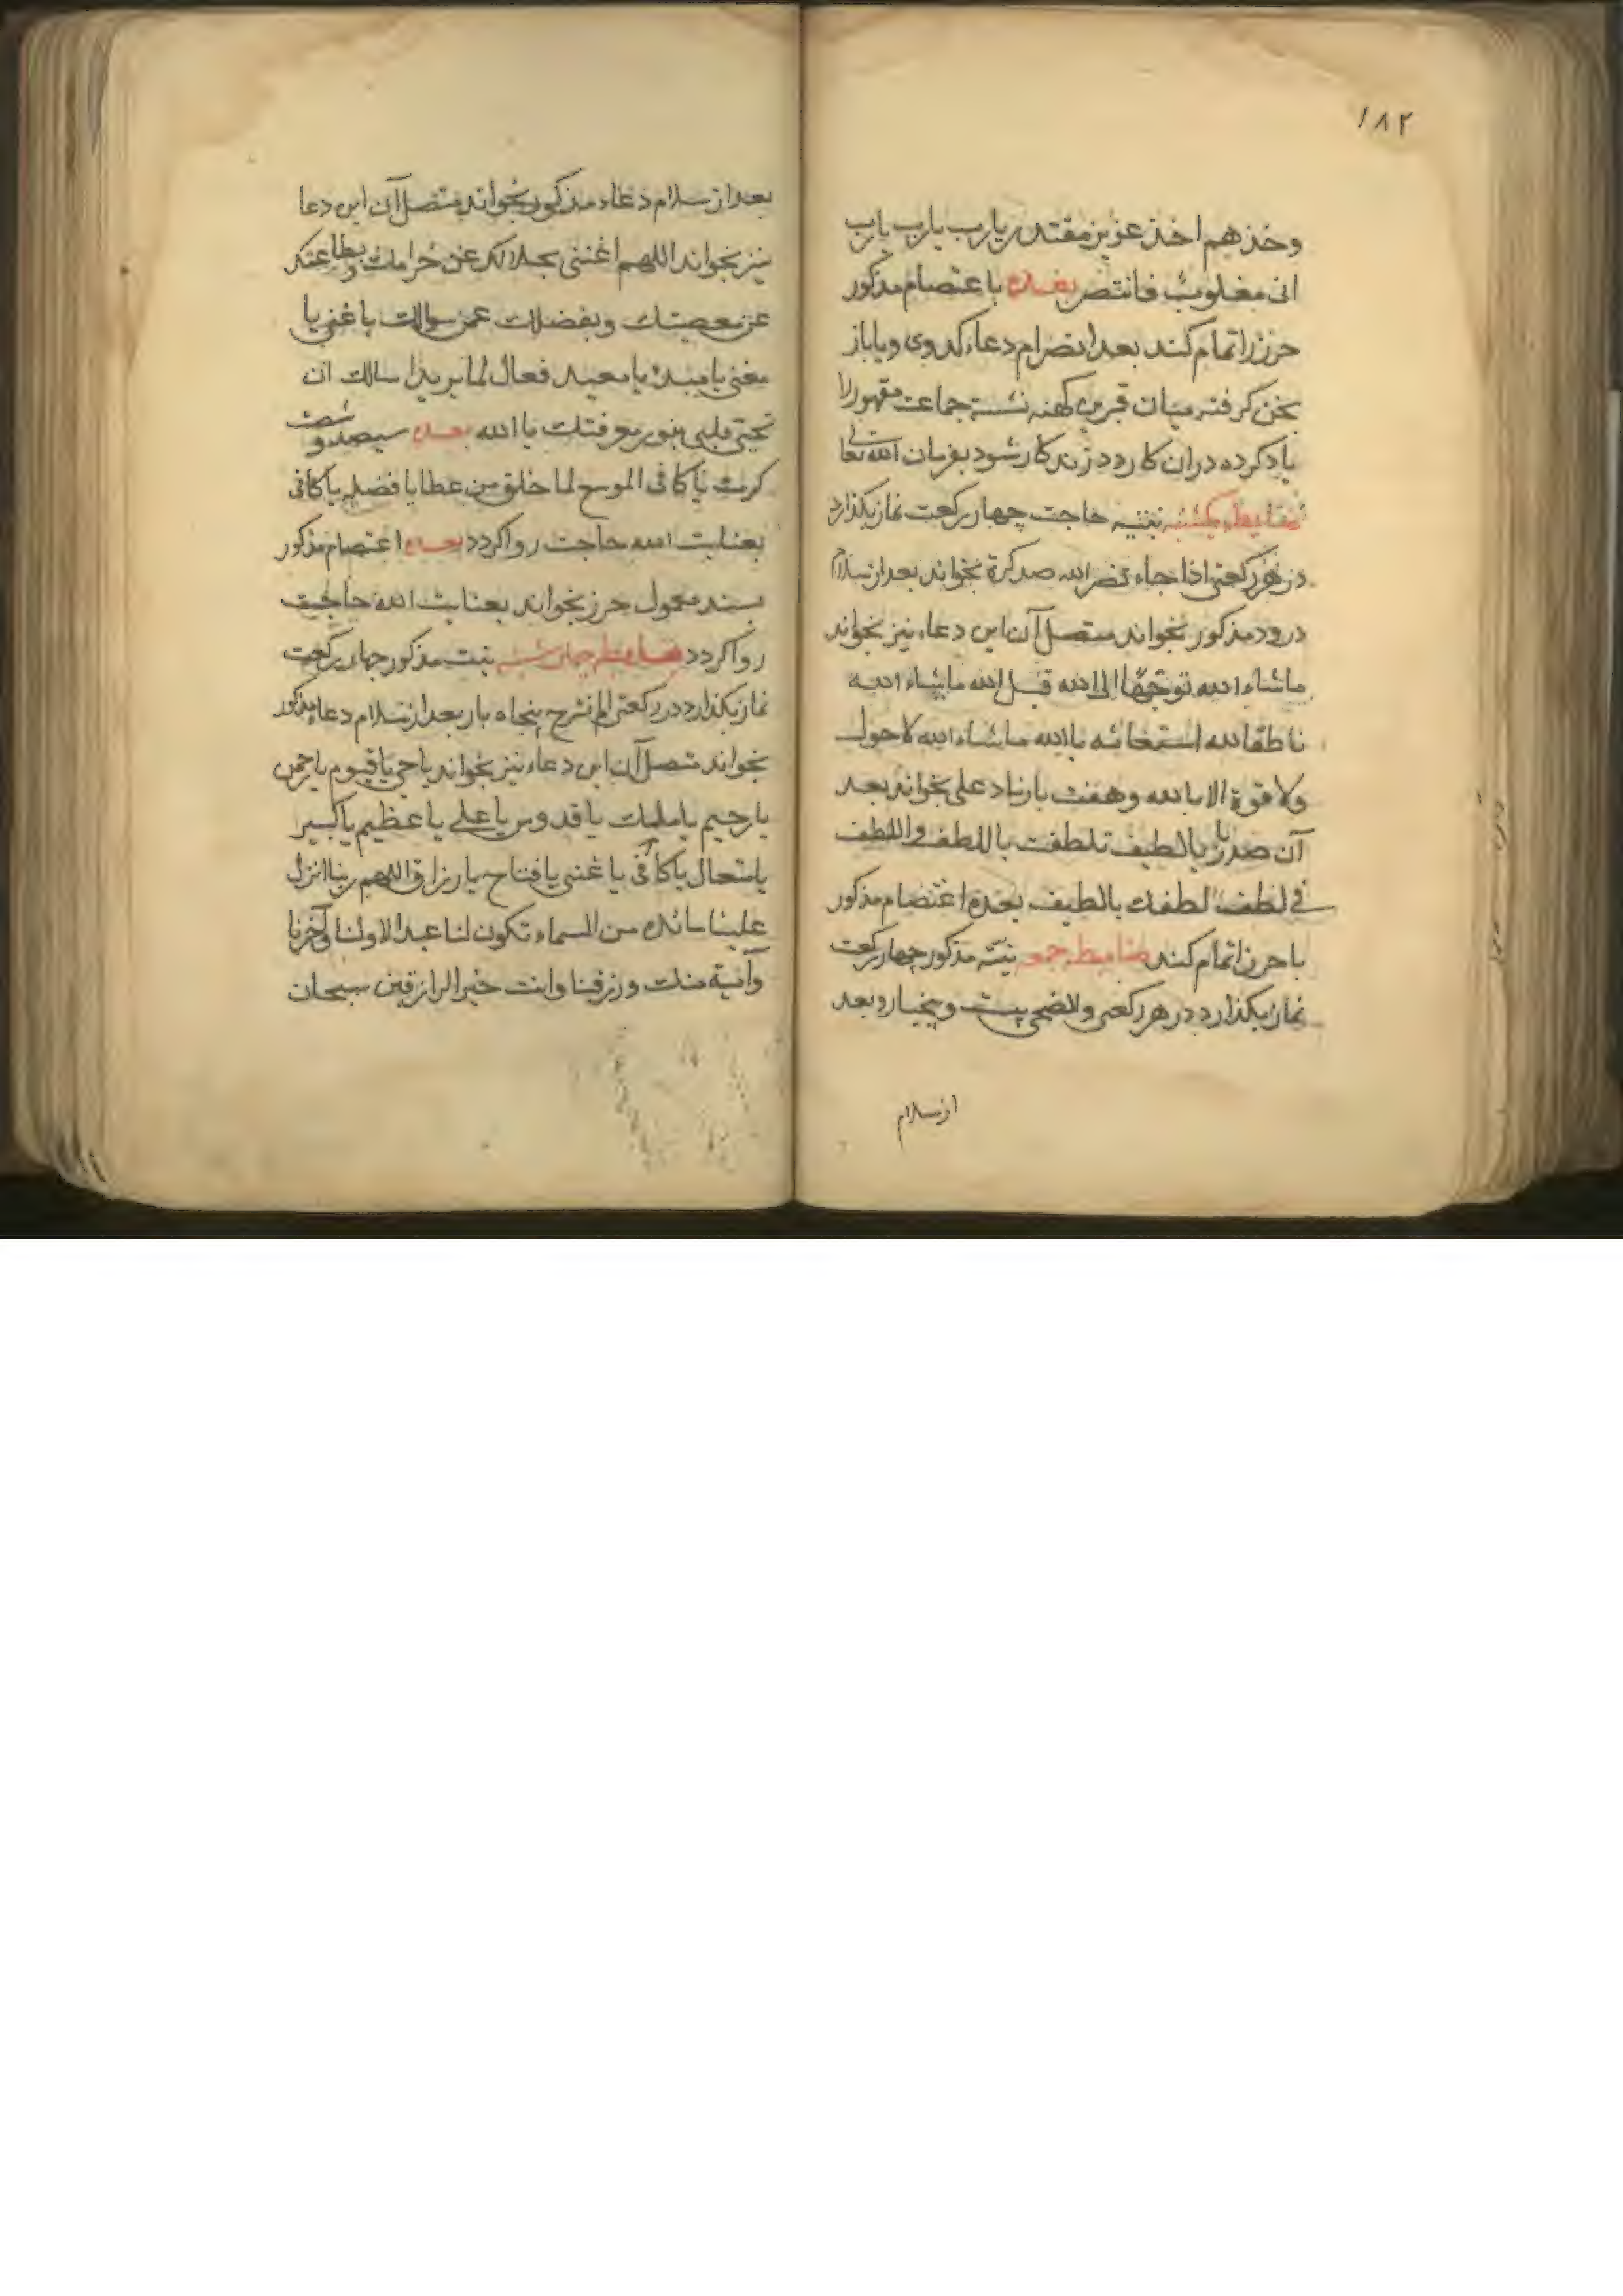 ۱۸۲
وخذهم اخذ عزیز مقتدر یارب یارب یارب
انی مغلوب فانتصر بعده با اعتصام مذکور
حرز را تمام کند بعد انصرام دعاء کدوی ویا باز
گرفته میان قبرین کهنه نشسته جماعت مقهور را
یاد کرده دران کارد زند کار شود بفرمان الله تعالی
ضابطه یکشنبه بنیته حاجت چهار رکعت نماز بگذارد
در هر رکعتی اذا جاء نصر الله صد کرة بخواند بعد از سلام
درود مذکور بخواند متصل آن این دعاء نیز بخواند
ماشاء الله توجها الی الله قبل الله ماشاء الله
ناطقا لله استغاثه بالله ماشاء الله لا حول
ولا قوة الا بالله وهفت بار ناد علی بخواند بعد
آن صد بار یا لطیف تلطفت باللطف واللطف
فی لطف لطفك یا لطیف بعده اعتصام مذکور
با حرز اتمام کند ضابطه جمعه نیته مذکور چهار رکعت
نماز بگذارد در هر رکعتی والضحی بیست و پنجبار و بعد
از سلام
بعد از سلام دعاء مذکور بخواند متصل آن این دعا
نیز بخواند اللهم اغننی بحلالك عن حرامك وبطاعتك
عن معصیتك وبفضلك عمن سواك یا غنی یا
مغنی یا مبدئ یا معید فعال لما یرید اسالك ان
تحیی قلبی بنور معرفتك یا الله بعده سیصد و شصت
کرت یا کافی الموسع لما خلق من عطایا فضله یا کافی
بعنایت الله حاجت روا گردد بعده اعتصام مذکور
بسند معمول حرز بخواند بعنایت الله حاجت
روا گردد ضابطه چهارشنبه نیت مذکور چهار رکعت
نماز بگذارد در رکعتی الم نشرح پنجاه بار بعد از سلام دعاء مذکور
بخواند متصل آن این دعاء نیز بخواند یا حی یا قیوم یا رحمن
یا رحیم یا ملك یا قدوس یا علی یا عظیم یا کبیر
یا متعال یا کافی یا غنی یا فتاح یا رزاق اللهم ربنا انزل
علینا مائدة من السماء تکون لنا عیدا لاولنا وآخرنا
وآیة منك ورزقنا وانت خیر الرازقین سبحان